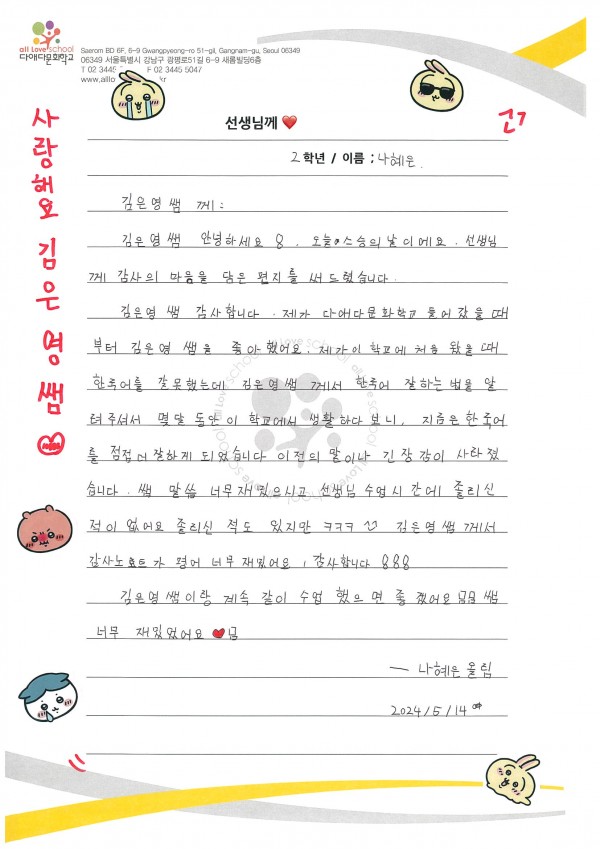 all Love school
다애다문화학교
Saerom BD 6F, 6-9 Gwangpyeong-ro 51-gil, Gangnam-gu, Seoul 06349
06349 서울특별시 강남구 광평로51길 6-9 새롬빌딩6층
T 02 3445 F 02 3445 5047
www.alllo
선생님께 ❤
2 학년 / 이름 ; 나혜은.
사랑해요 김은영 쌤
김은영 쌤 께:
김은영 쌤 안녕하세요 8. 오늘이 스승의 날이에요. 선생님
께 감사의 마음을 담은 편지를 써 드렸습니다.
김은영 쌤 감사합니다. 제가 다애다문화학교 들어 갔을 때
부터 김은영 쌤을 좋아했어요. 제가 이 학교에 처음 왔을 때
한국어를 잘못했는데 김은영 쌤 께서 한국어 잘하는 법을 알
려주셔서 몇달 동안 이 학교에서 생활 하다 보니, 지금은 한국어
를 점점 더 잘하게 되었습니다 이전의 말이나 긴장감이 사라졌
습니다. 쌤 말씀 너무 재있으시고 선생님 수업 시간에 졸리신
적이 없어요 졸리신 적도 있지만 ㅋㅋㅋㅋ 김은영 쌤 께서
감사노트가 평어 너무 재있어요, 감사합니다 888
김은영 쌤이랑 계속 같이 수업 했으면 좋겠어요 쌤
너무 재밌었어요 ❤
— 나혜은 올림
2024/5/14